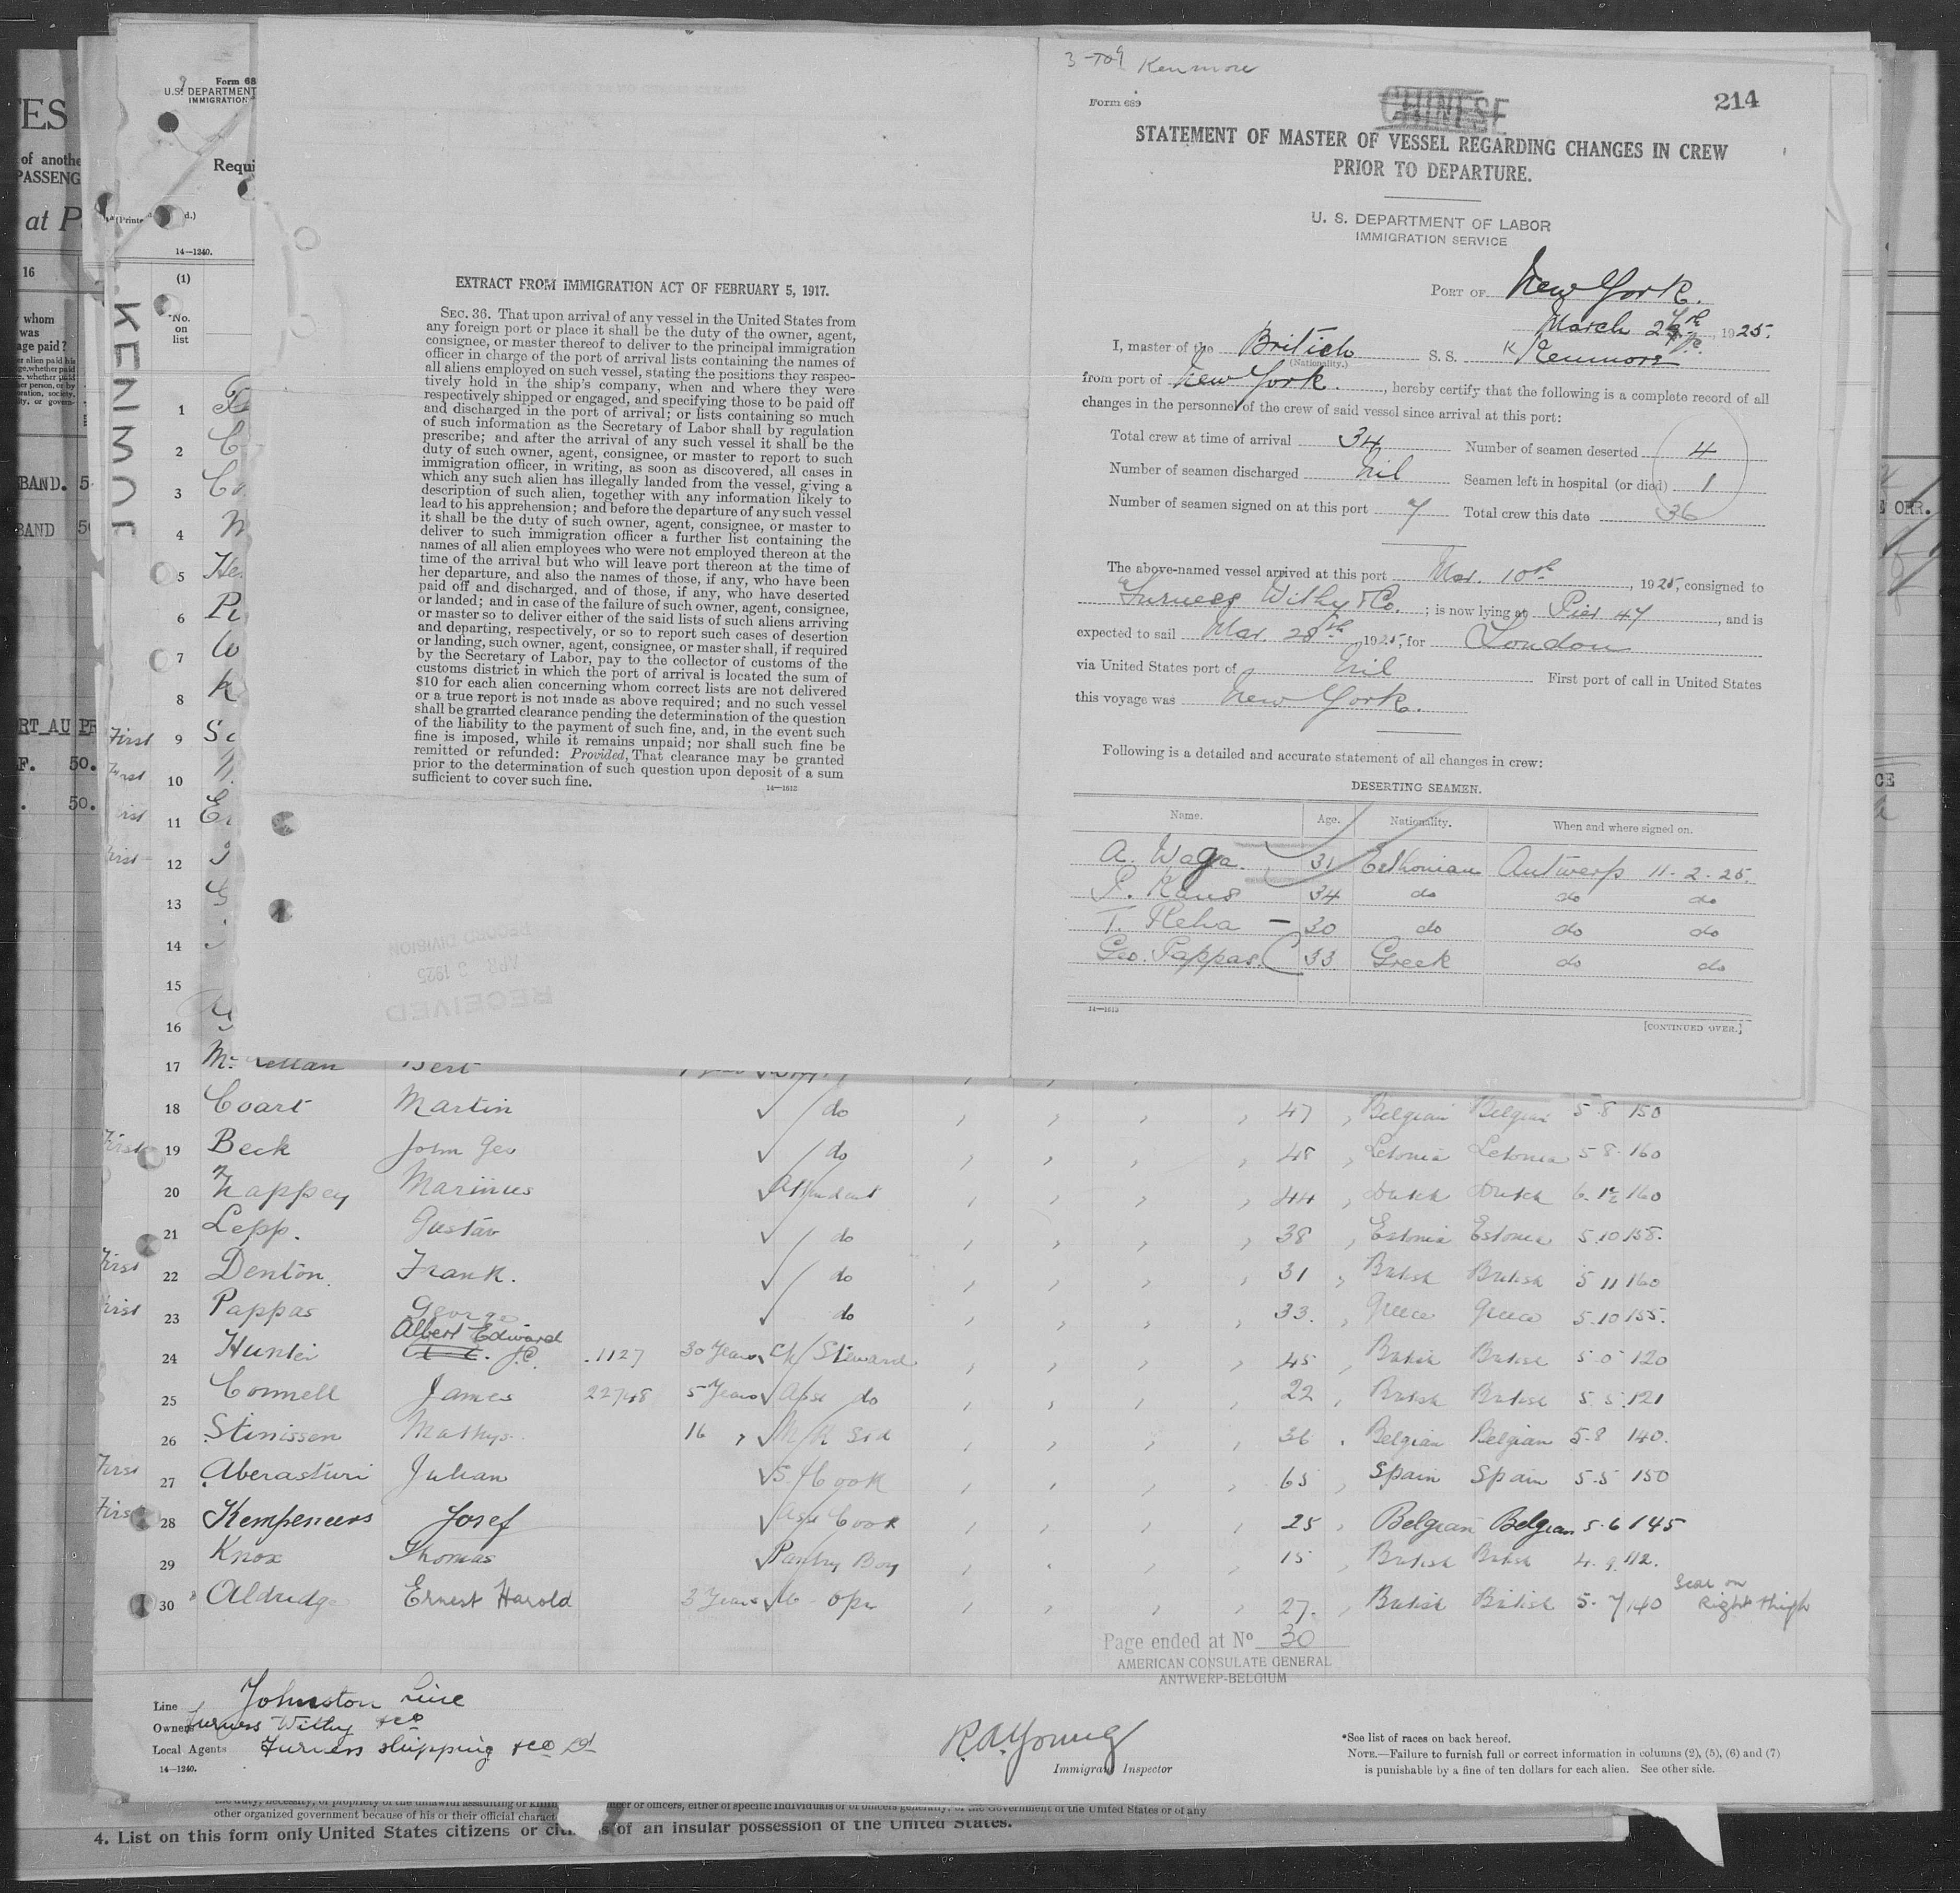 TES
of anothe
PASSENG
at P
16
whom
was
age paid?
BAND. 5
BAND 50
RT AU PR
F. 50.
. 50.
Form 68
U.S. DEPARTMENT
IMMIGRATION
Requi
14—1240.
(1)
No.
on
list
KENMOR
1
2
3
4
5 He
6
7
8
First 9 Sc
First 10
First 11
First 12
13
14
15
16
EXTRACT FROM IMMIGRATION ACT OF FEBRUARY 5, 1917.
SEC. 36. That upon arrival of any vessel in the United States from
any foreign port or place it shall be the duty of the owner, agent,
consignee, or master thereof to deliver to the principal immigration
officer in charge of the port of arrival lists containing the names of
all aliens employed on such vessel, stating the positions they respec-
tively hold in the ship's company, when and where they were
respectively shipped or engaged, and specifying those to be paid off
and discharged in the port of arrival; or lists containing so much
of such information as the Secretary of Labor shall by regulation
prescribe; and after the arrival of any such vessel it shall be the
duty of such owner, agent, consignee, or master to report to such
immigration officer, in writing, as soon as discovered, all cases in
which any such alien has illegally landed from the vessel, giving a
description of such alien, together with any information likely to
lead to his apprehension; and before the departure of any such vessel
it shall be the duty of such owner, agent, consignee, or master to
deliver to such immigration officer a further list containing the
names of all alien employees who were not employed thereon at the
time of the arrival but who will leave port thereon at the time of
her departure, and also the names of those, if any, who have been
paid off and discharged, and of those, if any, who have deserted
or landed; and in case of the failure of such owner, agent, consignee,
or master so to deliver either of the said lists of such aliens arriving
and departing, respectively, or so to report such cases of desertion
or landing, such owner, agent, consignee, or master shall, if required
by the Secretary of Labor, pay to the collector of customs of the
customs district in which the port of arrival is located the sum of
$10 for each alien concerning whom correct lists are not delivered
or a true report is not made as above required; and no such vessel
shall be granted clearance pending the determination of the question
of the liability to the payment of such fine, and, in the event such
fine is imposed, while it remains unpaid; nor shall such fine be
remitted or refunded: Provided, That clearance may be granted
prior to the determination of such question upon deposit of a sum
sufficient to cover such fine.
14—1613
RECORD DIVISION
APR 3 1925
RECEIVED
Kenmore
Form 689
CHINESE
214
STATEMENT OF MASTER OF VESSEL REGARDING CHANGES IN CREW
PRIOR TO DEPARTURE.
U. S. DEPARTMENT OF LABOR
IMMIGRATION SERVICE
PORT OF New York.
March 1925.
I, master of the British S. S. Kenmore
(Nationality.)
from port of New York., hereby certify that the following is a complete record of all
changes in the personnel of the crew of said vessel since arrival at this port:
Total crew at time of arrival 34 Number of seamen deserted 4
Number of seamen discharged nil Seamen left in hospital (or died) 1
Number of seamen signed on at this port 7 Total crew this date 36
The above-named vessel arrived at this port Mar. 10th, 1925, consigned to
Furness Withy & Co.; is now lying at Pier 47, and is
expected to sail Mar. 28th, 1925, for London
via United States port of nil First port of call in United States
this voyage was New York.
Following is a detailed and accurate statement of all changes in crew:
DESERTING SEAMEN.
Name. Age. Nationality. When and where signed on.
A. Waga. 31 Esthonian Antwerp 11-2-25.
P. Kans 34 do do do
T. Reha 30 do do do
Geo. Pappas. 33 Greek do do
14—1613
[CONTINUED OVER.]
17 Bert
18 Coart Martin do 47 Belgian Belgian 5-8 150
First 19 Beck John Geo do 48 Letonia Letonia 5-8 160
20 Nappey Marinus Attendant 44 Dutch Dutch 6-1½ 160
21 Lepp. Gustav do 38 Estonia Estonia 5.10 158.
First 22 Denton Frank. do 31 British British 5 11 160
First 23 Pappas George do 33. Greece Greece 5-10 155.
Albert Edward
24 Hunter .1127 30 Years Ch Steward 45 British British 5 5 120
25 Connell James 22748 5 Years Asst do 22 British British 5 5 121
26 Stinissen Mathys 16 M R Std 36 Belgian Belgian 5-8 140.
First 27 Aberasturi Julian S. Cook 65 Spain Spain 5-5 150
First 28 Kempeneers Josef Asst Cook 25 Belgian Belgian 5-6 145
29 Knox Thomas Pantry Boy 15 British British 4. 9. 112.
30 Aldridge Ernest Harold 3 Years W Opr 27. British British 5-7 140 Scar on
Right thigh
Page ended at No 30
AMERICAN CONSULATE GENERAL
ANTWERP-BELGIUM
Line Johnston Line
Owners Furness Withy & Co
Local Agents Furness Shipping & Co Ltd
14—1240.
R.A. Young
Immigrant Inspector
*See list of races on back hereof.
NOTE.—Failure to furnish full or correct information in columns (2), (5), (6) and (7)
is punishable by a fine of ten dollars for each alien. See other side.
other organized government because of his or their official charact
er or officers, either of specific individuals or of officers generally, of the Government of the United States or of any
4. List on this form only United States citizens or cit s of an insular possession of the United States.